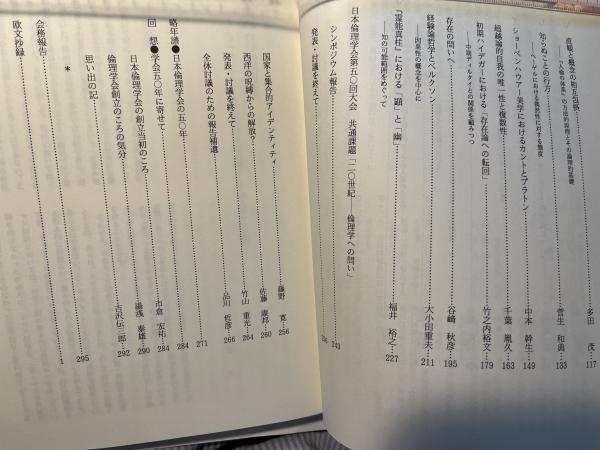 直観と概念の相互包摂
―『人倫の体系』の方法的原理とその論理的基礎
多田　茂…117
知らぬことの行方
―ヘーゲルにおける偶然性に対する態度
菅生　和典…133
ショーペンハウアー美学におけるカントとプラトン
中本　幹生…149
超越論的自我の唯一性と複数性
千葉　胤久…163
初期ハイデガーにおける「存在論への転回」
―中期ディルタイとの関係を顧みつつ
竹之内裕文…179
存在の問いへ
谷崎　秋彦…195
経験論哲学とベルクソン
―因果性の概念を中心に
大小田重夫…211
『霊能真柱』における「顕」と「幽」
―知の可能範囲をめぐって
福井　裕之…227
日本倫理学会第五〇回大会　共通課題「二〇世紀――倫理学への問い」
シンポジウム報告…243
発表・討議を終えて
国家と集合的アイデンティティ
藤野　寛…256
西洋の呪縛からの解放？
佐藤　康邦…260
発表・討議を終えて
竹山　重光…264
全体討議のための報告補遺
品川　哲彦…266
271
略年譜●日本倫理学会の五〇年
284
回　想●学会五〇年に寄せて
市倉　宏祐…284
日本倫理学会の創立当初のころ
湯浅　泰雄…290
倫理学会創立のころの気分
古沢伝三郎…292
思い出の記
295
＊
会務報告
欧文抄録
1